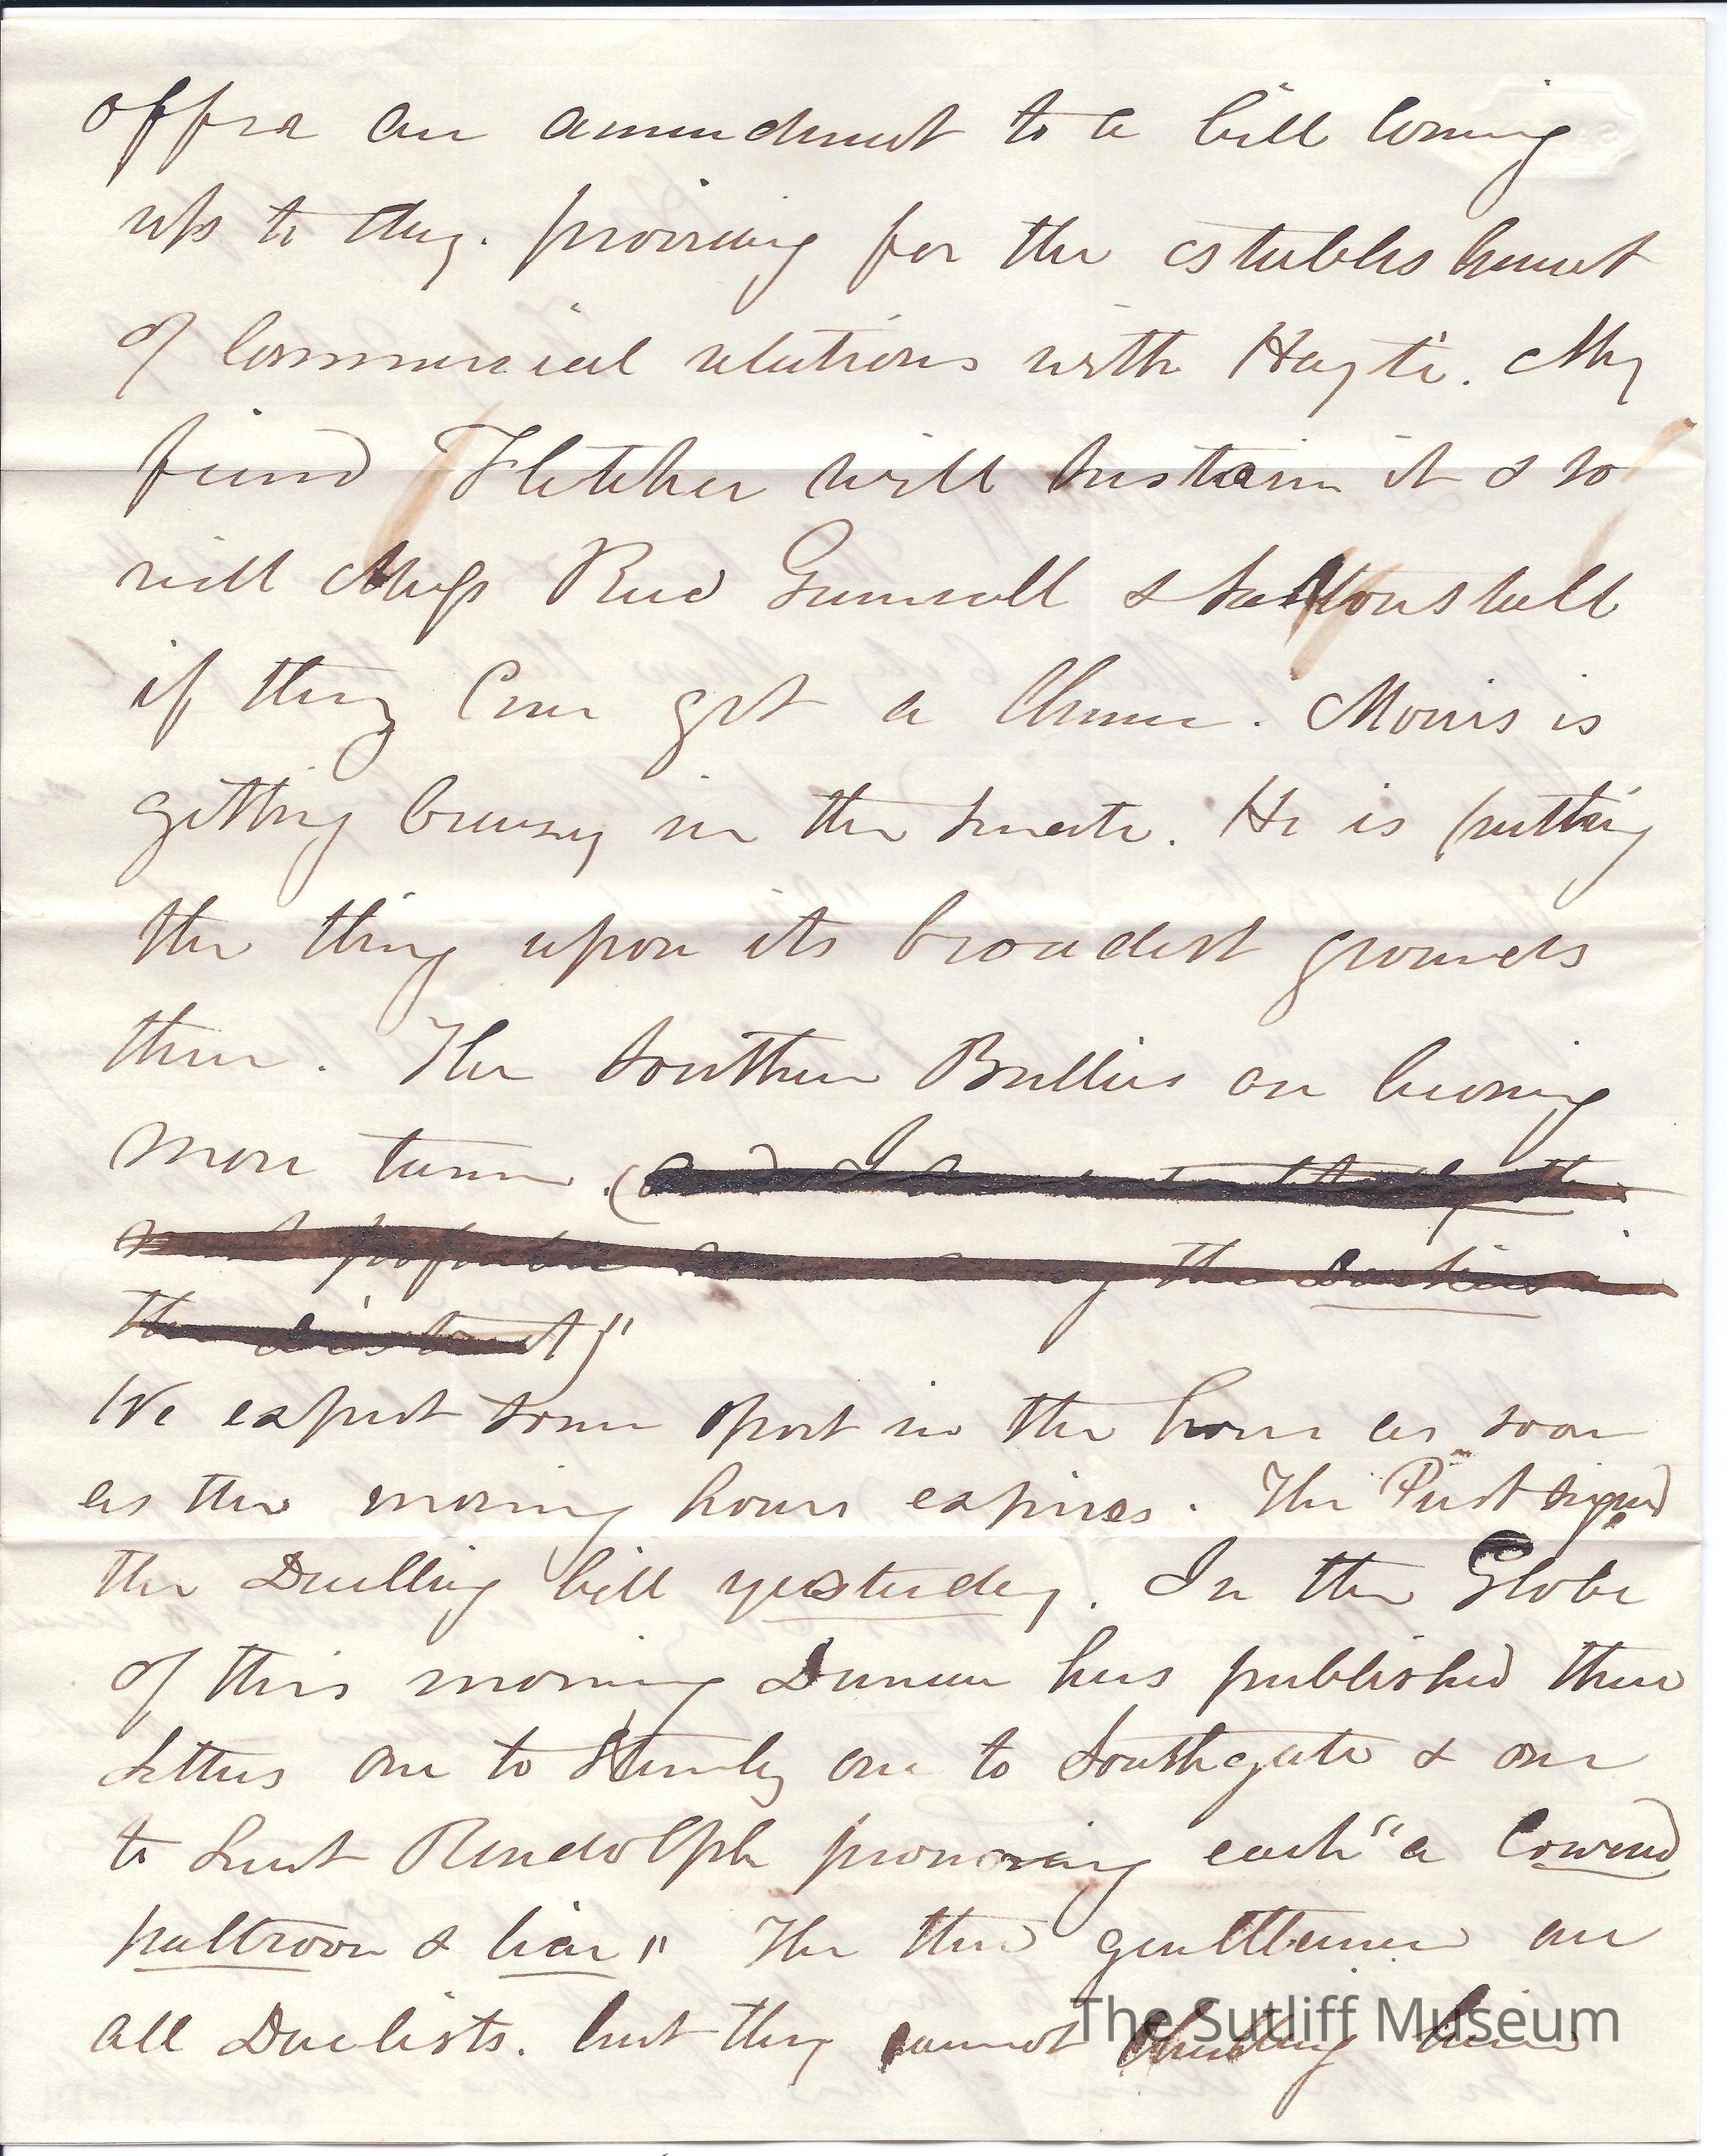 offer an amendment to a bill coming
up to day. proviing for the establishment
of Commercial relations with Hayti. My
friend Fletcher will sustain it & so
will Messrs Reed Grennell & Saltonstall
if they Can get a Chance. Morris is
getting brauny in the Senate. He is putting
the thing upon its broadest grounds
there. The Southern Bullies are becoming
more tame. (and I
profitable among the Darkies in
the district)"
We expect some sport in the house as soon
as the morning hour expires. The Prest signed
the Duelling bill yesterday. In the Globe
of this morning Duncan has published three
Letters one to Stanley one to Southgate & one
to Lieut Randolph pronouncing each "a Coward
paltroon & liar" The three gentlemen are
all Duelists. but they cannot Challeng him
The Sutliff Museum